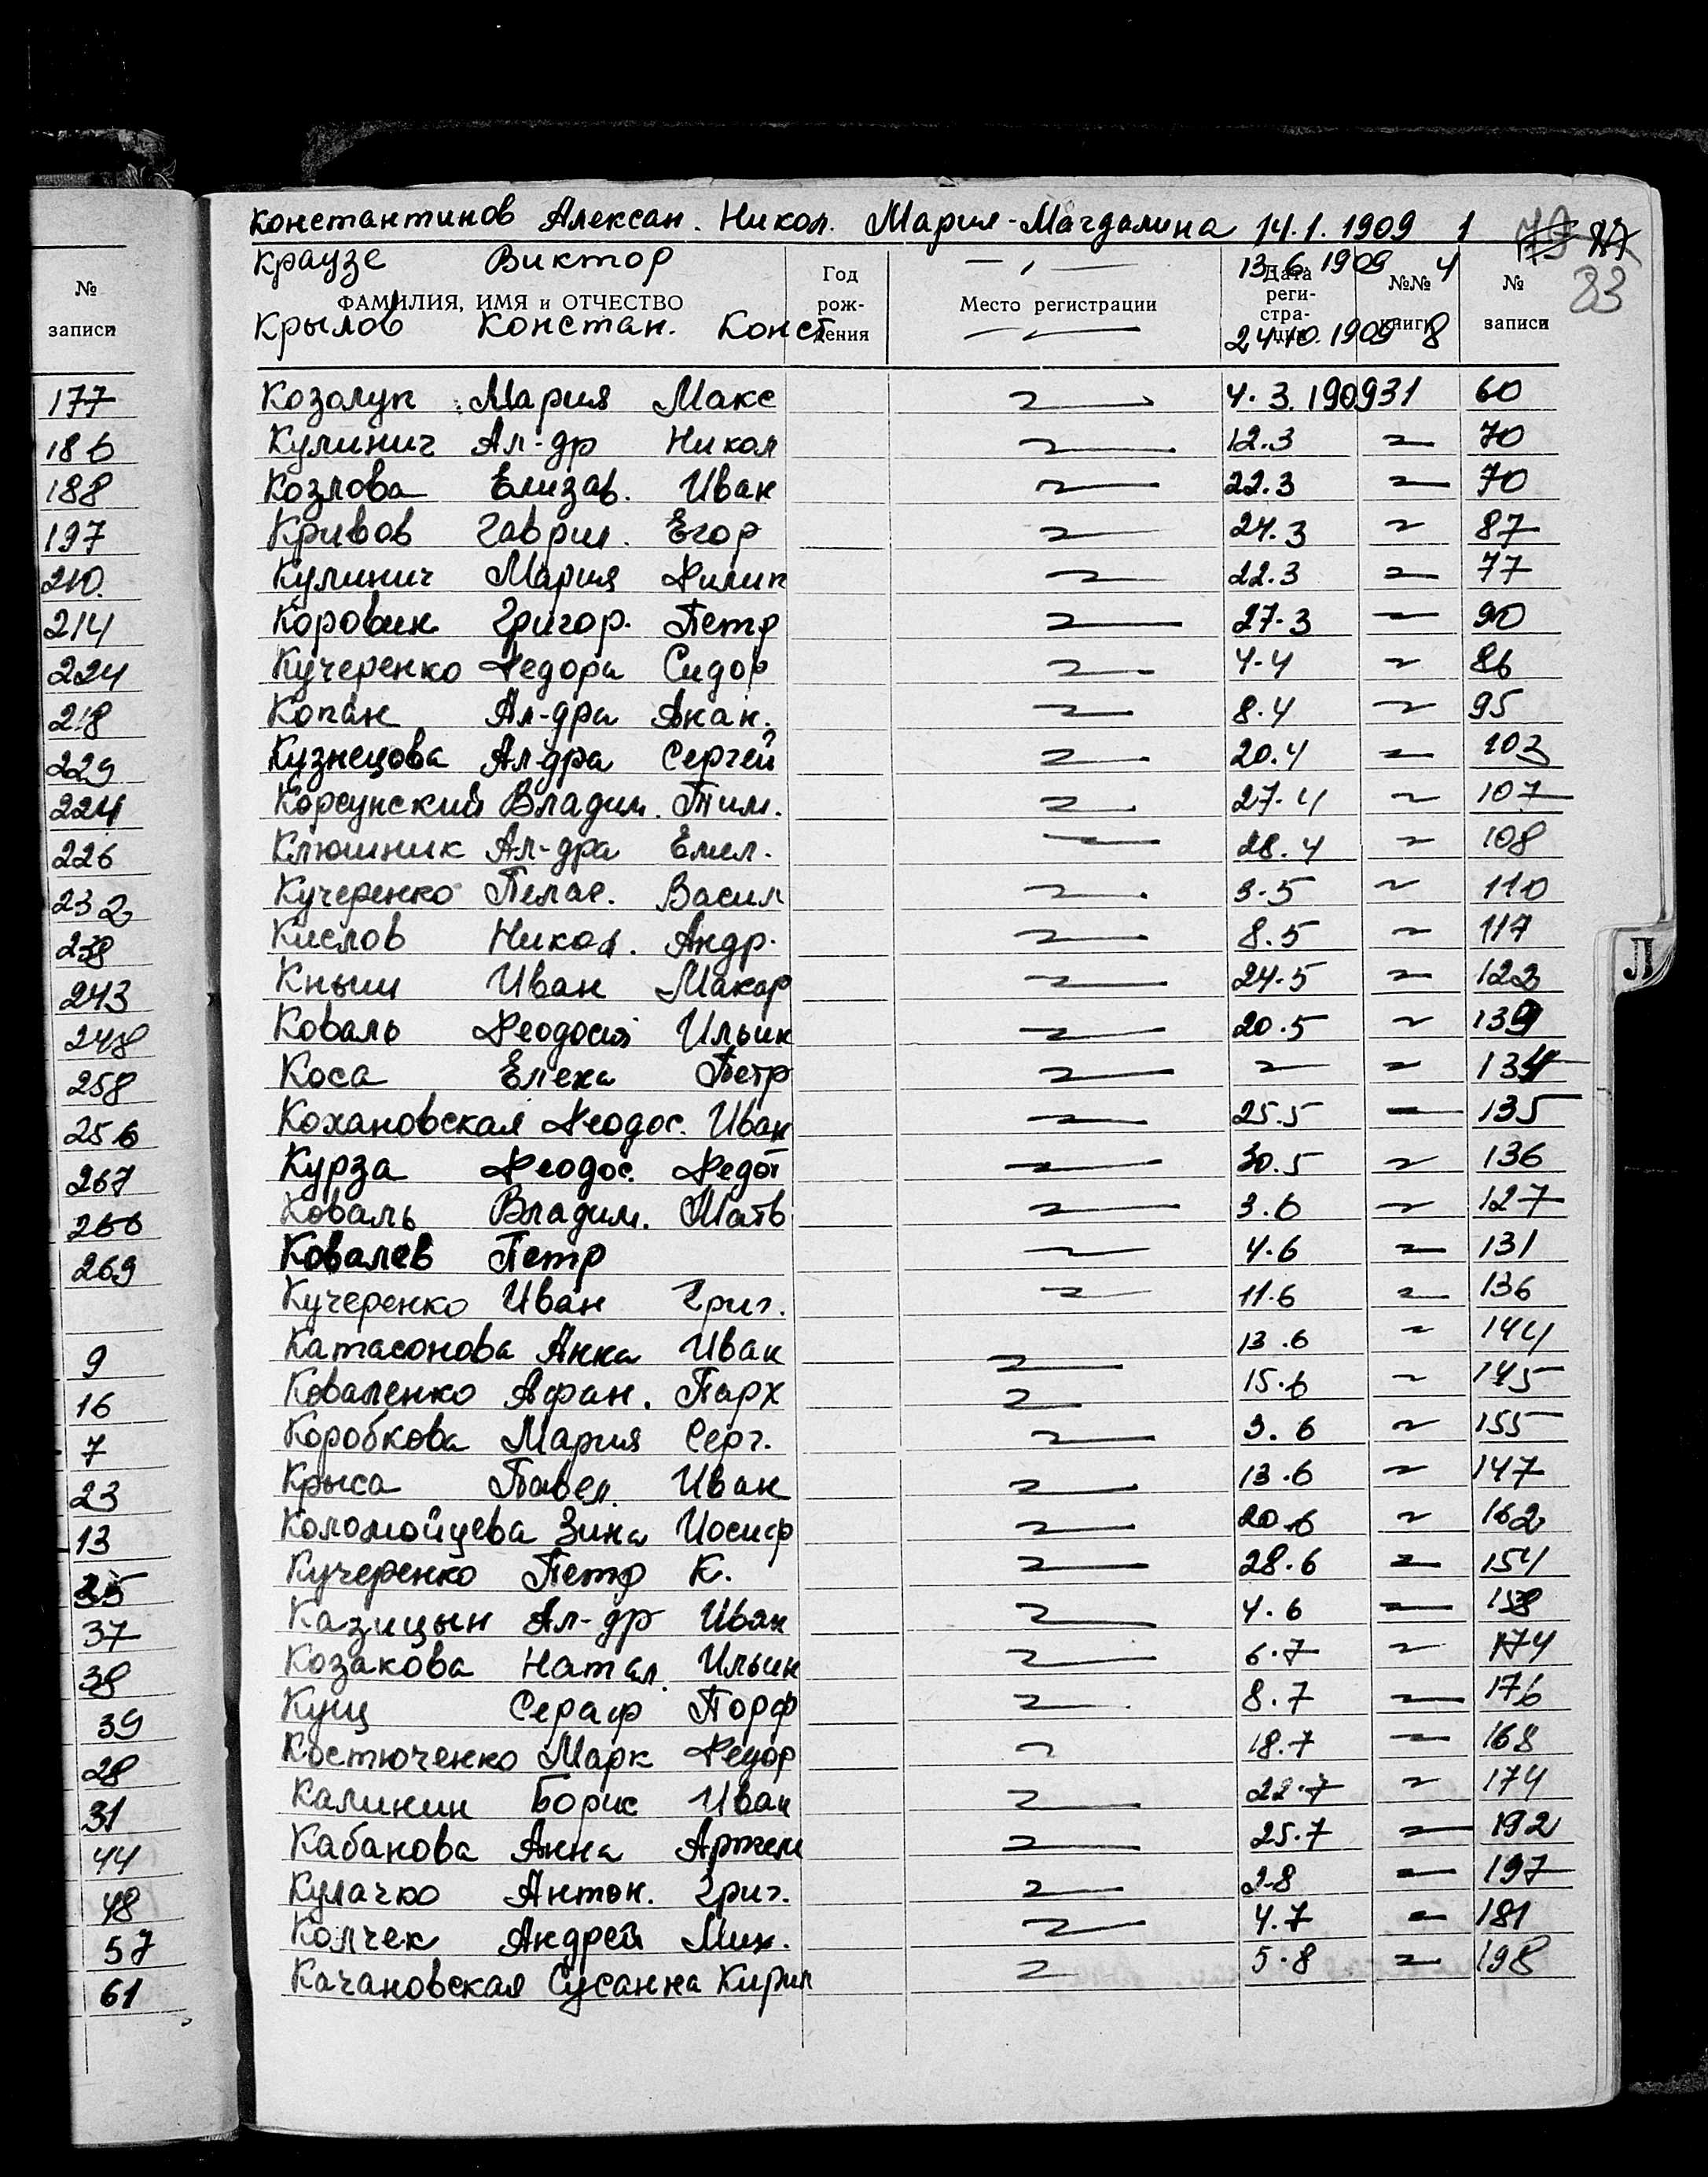 Константинов Алексан. Никол. Мария-Магдалина 14.1.1909 1
Краузе Виктор — " — 13.6.1909 4
83
№ записи
ФАМИЛИЯ, ИМЯ и ОТЧЕСТВО Год рождения Место регистрации Дата регистрации №№ книги № записи
Крылов Констан. Конст 24.10.1909 8
177 Козолуп Мария Макс 4.3.1909 31 60
186 Кулинич Ал-др Никол 12.3 70
188 Козлова Елизав. Иван 22.3 70
197 Кривов Гаврил. Егор 24.3 87
210. Кулинич Мария Филип 22.3 77
214 Коровин Григор. Петр 27.3 90
224 Кучеренко Федора Сидор 4.4 86
218 Копан Ал-дра Анан. 8.4 95
229 Кузнецова Ал-дра Сергей 20.4 103
224 Корсунский Владим. Тим. 27.4 107
226 Клюшник Ал-дра Емел. 28.4 108
232 Кучеренко Пелаг. Васил 3.5 110
238 Кислов Никол. Андр. 8.5 117
243 Кныш Иван Макар 24.5 122
248 Коваль Феодосий Ильин 20.5
258 Коса Елена Петр 134
256 Кохановская Феодос. Иван 25.5 135
267 Курза Феодос. Федот 30.5 136
266 Коваль Владим. Матв 3.6 127
269 Ковалев Петр 4.6 131
Кучеренко Иван Григ. 11.6 136
9 Катасонова Анна Иван 13.6 144
16 Коваленко Афан. Парх 15.6 145
7 Коробкова Мария Серг. 3.6 155
23 Крыса Павел. Иван 13.6 147
13 Коломойцева Зина Иосиф 20.6 162
35 Кучеренко Петр К. 28.6 154
37 Казицын Ал-др Иван 4.6 158
38 Козакова Натал. Ильин 6.7 174
39 Кущ Сераф Порф 8.7 176
28 Костюченко Марк Федор 18.7 168
31 Калинин Борис Иван 22.7 174
44 Кабанова Анна Артем 25.7 192
48 Кулачко Антон. Григ. 2.8 197
57 Колчек Андрей Мих. 4.7 181
61 Качановская Сусанна Кирил 5.8 198
Л